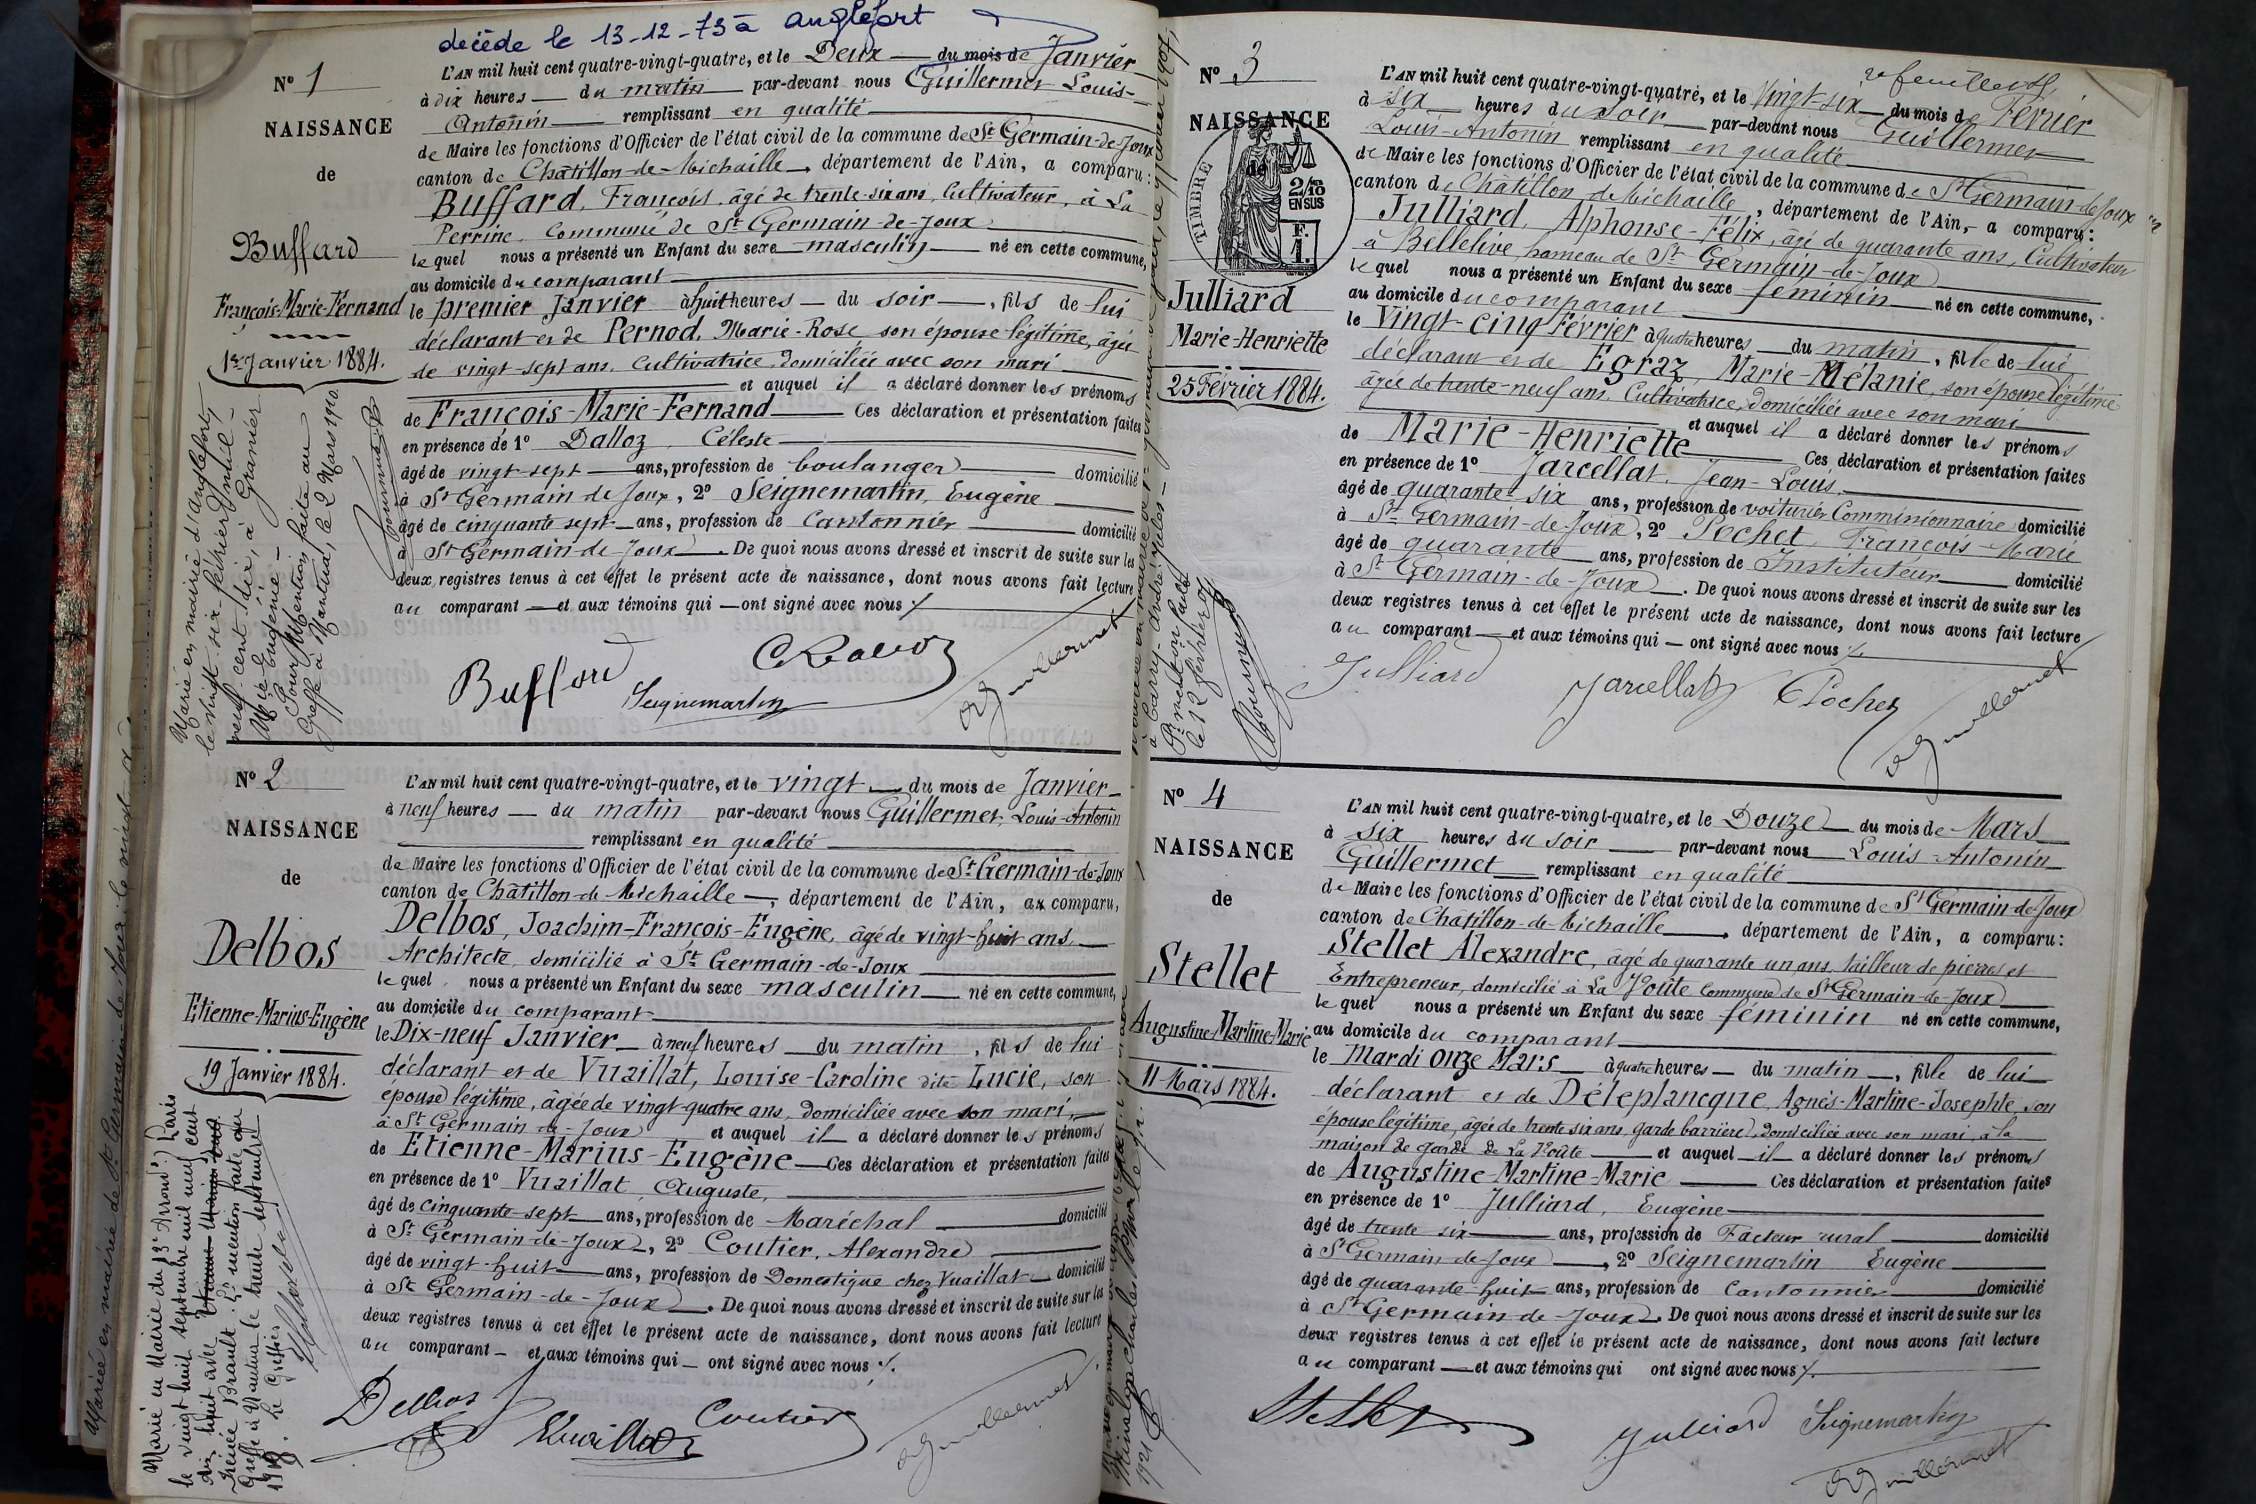 décède le 13-12-73 à anglefort
N° 1
NAISSANCE
de
Buffard
François-Marie-Fernand
1er Janvier 1884.
L'AN mil huit cent quatre-vingt-quatre, et le Deux du mois de Janvier
à dix heures du matin par-devant nous Guillermet Louis-
Antonin remplissant en qualité
de Maire les fonctions d'Officier de l'état civil de la commune de St Germain-de-Joux
canton de Châtillon-de-Michaille, département de l'Ain, a comparu:
Buffard, François, âgé de trente-six ans, Cultivateur, à La
Perrine, Commune de St Germain-de-Joux
lequel nous a présenté un Enfant du sexe masculin né en cette commune,
au domicile du comparant
le premier Janvier à huit heures du soir, fils de lui
déclarant et de Pernod, Marie-Rose, son épouse légitime, âgée
de vingt sept ans, Cultivatrice, domiciliée avec son mari
et auquel il a déclaré donner les prénoms
de François-Marie-Fernand Ces déclaration et présentation faites
en présence de 1° Dalloz, Céleste
âgé de vingt-sept ans, profession de boulanger domicilié
à St Germain de Joux, 2° Seignemartin, Eugène
âgé de cinquante sept ans, profession de Cantonnier domicilié
à St Germain-de-Joux. De quoi nous avons dressé et inscrit de suite sur les
deux registres tenus à cet effet le présent acte de naissance, dont nous avons fait lecture
au comparant et aux témoins qui ont signé avec nous
Buffard
Seignemartin
Guillermet
Marié en mairie d'Anglefort
le vingt six février mil
neuf cent dix, à Granier
Marie Eugénie
Pour Mention faite au
Greffe à Nantua, le 2 Mars 1910.
N° 2
NAISSANCE
de
Delbos
Etienne-Marius-Eugène
19 Janvier 1884.
L'AN mil huit cent quatre-vingt-quatre, et le vingt du mois de Janvier
à neuf heures du matin par-devant nous Guillermet, Louis-Antonin
remplissant en qualité
de Maire les fonctions d'Officier de l'état civil de la commune de St Germain-de-Joux
canton de Châtillon-de-Michaille, département de l'Ain, a comparu,
Delbos, Joachim-François-Eugène, âgé de vingt-huit ans
Architecte, domicilié à St Germain-de-Joux
lequel nous a présenté un Enfant du sexe masculin né en cette commune,
au domicile du comparant
le Dix-neuf Janvier à neuf heures du matin, fils de lui
déclarant et de Vuaillat, Louise-Caroline dite Lucie, son
épouse légitime, âgée de vingt-quatre ans, domiciliée avec son mari,
à St Germain-de-Joux et auquel il a déclaré donner les prénoms
de Etienne-Marius-Eugène Ces déclaration et présentation faites
en présence de 1° Vuaillat, Auguste,
âgé de cinquante-sept ans, profession de Maréchal domicilié
à St Germain-de-Joux, 2° Coutier, Alexandre
âgé de vingt-huit ans, profession de Domestique chez Vuaillat domicilié
à St Germain-de-Joux. De quoi nous avons dressé et inscrit de suite sur les
deux registres tenus à cet effet le présent acte de naissance, dont nous avons fait lecture
au comparant et aux témoins qui ont signé avec nous
Delbos
Vuaillat
Coutier
Guillermet
Marié en Mairie du Paris
le vingt huit septembre mil neuf cent
dix huit avec
Brault. Pr mention faite au
Greffe à Nantua le trente septembre
1918. Le Greffier
Mariée en mairie de St Germain-de-Joux le vingt
N° 3
NAISSANCE
de
TIMBRE
2/10 EN SUS
F. 1.
Julliard
Marie-Henriette
25 Février 1884.
2e feuillet
L'AN mil huit cent quatre-vingt-quatre, et le Vingt-six du mois de Février
à six heures du soir par-devant nous Guillermet
Louis-Antonin remplissant en qualité
de Maire les fonctions d'Officier de l'état civil de la commune de St Germain-de-Joux
canton de Châtillon-de-Michaille, département de l'Ain, a comparu:
Julliard, Alphonse-Félix, âgé de quarante ans, Cultivateur
à Bellerive, hameau de St Germain-de-Joux
lequel nous a présenté un Enfant du sexe féminin né en cette commune,
au domicile du comparant
le Vingt-cinq Février à quatre heures du matin, fille de lui
déclarant et de Egraz, Marie-Mélanie, son épouse légitime
âgée de trente-neuf ans, Cultivatrice, domiciliée avec son mari
et auquel il a déclaré donner les prénoms
de Marie-Henriette Ces déclaration et présentation faites
en présence de 1° Jarcellat, Jean-Louis
âgé de quarante-six ans, profession de voiturier Commissionnaire domicilié
à St Germain-de-Joux, 2° Pochet, François-Marie
âgé de quarante ans, profession de Instituteur domicilié
à St Germain-de-Joux. De quoi nous avons dressé et inscrit de suite sur les
deux registres tenus à cet effet le présent acte de naissance, dont nous avons fait lecture
au comparant et aux témoins qui ont signé avec nous
Julliard
Jarcellat
Pochet
Guillermet
N° 4
NAISSANCE
de
Stellet
Augustine-Martine-Marie
11 Mars 1884.
L'AN mil huit cent quatre-vingt-quatre, et le Douze du mois de Mars
à six heures du soir par-devant nous Louis-Antonin
Guillermet remplissant en qualité
de Maire les fonctions d'Officier de l'état civil de la commune de St Germain-de-Joux
canton de Châtillon-de-Michaille, département de l'Ain, a comparu:
Stellet Alexandre, âgé de quarante un ans, tailleur de pierres et
Entrepreneur, domicilié à La Voûte Commune de St Germain-de-Joux
lequel nous a présenté un Enfant du sexe féminin né en cette commune,
au domicile du comparant
le Mardi onze Mars à quatre heures du matin, fille de lui
déclarant et de Déléplancque, Agnès-Martine-Josephte, son
épouse légitime, âgée de trente six ans, garde barrière, domiciliée avec son mari, à la
maison de garde de La Voûte et auquel il a déclaré donner les prénoms
de Augustine-Martine-Marie Ces déclaration et présentation faites
en présence de 1° Julliard, Eugène
âgé de trente six ans, profession de Facteur rural domicilié
à St Germain de Joux, 2° Seignemartin Eugène
âgé de quarante-huit ans, profession de Cantonnier domicilié
à St Germain-de-Joux. De quoi nous avons dressé et inscrit de suite sur les
deux registres tenus à cet effet le présent acte de naissance, dont nous avons fait lecture
au comparant et aux témoins qui ont signé avec nous
Stellet
Julliard
Seignemartin
Guillermet